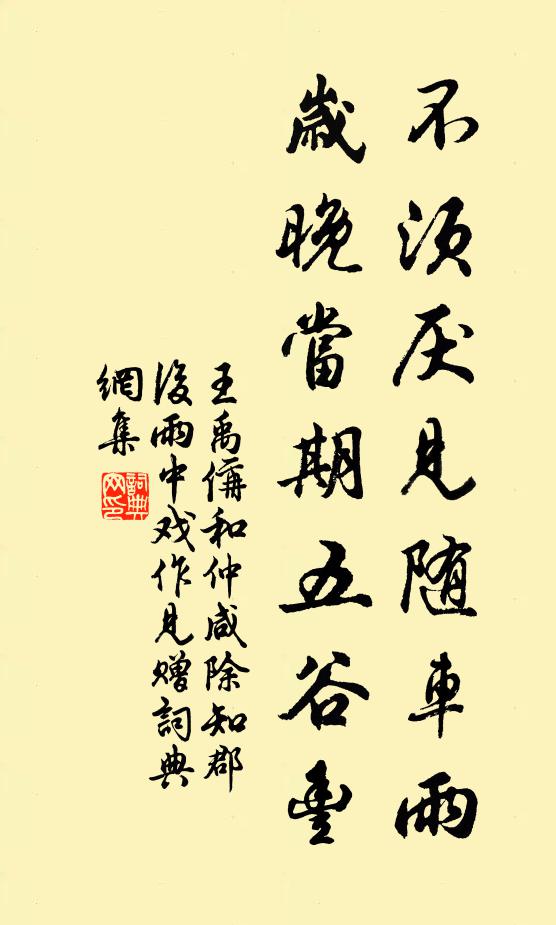 不须厌見随車雨
歲晚當期五谷豐
王禹偁和仲咸除知郡
後雨中戏作見赠詞典
網集
詞典
网印